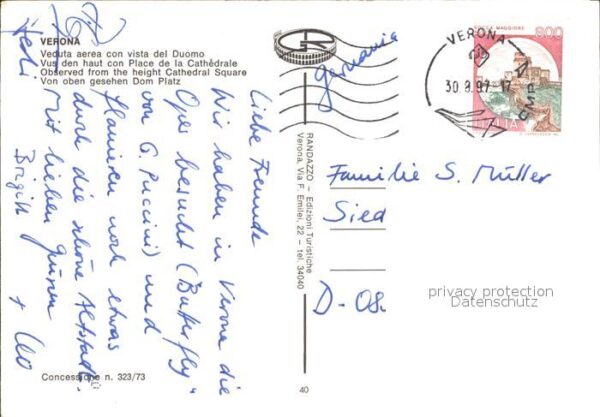 VERONA
Veduta aerea con vista del Duomo
Vus den haut con Place de la Cathêdrale
Observed from the height Cathedral Square
Von oben gesehen Dom Platz
Liebe Freunde
Wir haben in Verona die
Oper besucht (Butterfly"
von G. Puccini) und
flanieren noch etwas
durch die schöne Altstadt.
Mit lieben Grüssen
Brigitt + Leo
Hedi
Concessione n. 323/73
RANDAZZO – Edizioni Turistiche
Verona, Via F. Emilei, 22 – tel. 34040
40
germania
VERONA
30.8.97-17
CMP
ROCCA MAGGIORE
800
ITALIA
Familie S. Müller
Sied
D-08.
privacy protection
Datenschutz